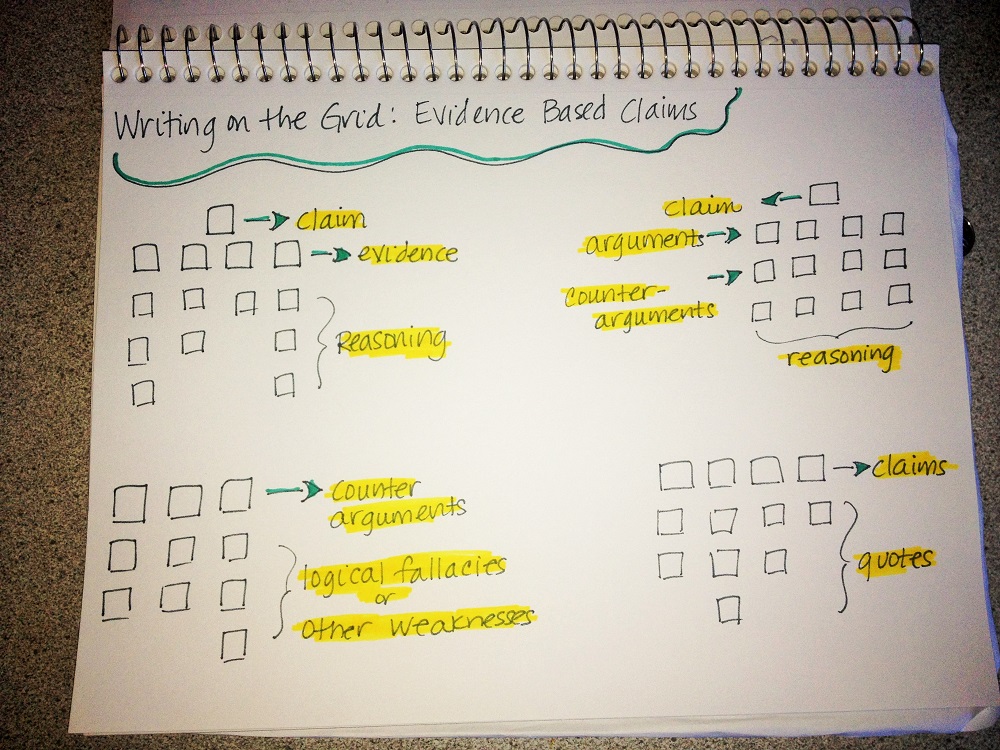 Writing on the Grid: Evidence Based Claims
claim
evidence
Reasoning
claim
arguments
counter-
arguments
reasoning
counter
arguments
logical fallacies
or
other weaknesses
claims
quotes